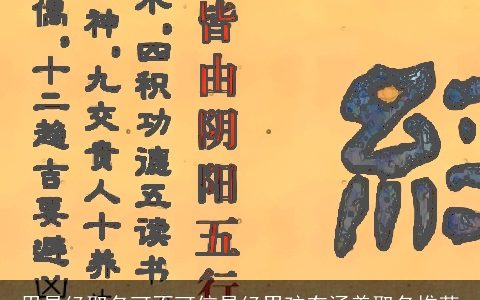 皆由阴阳五行
，四积功德五读书
神，九交贵人十养
，十二趋吉要避凶
用易经取名可不可信易经男孩有涵养取名推荐